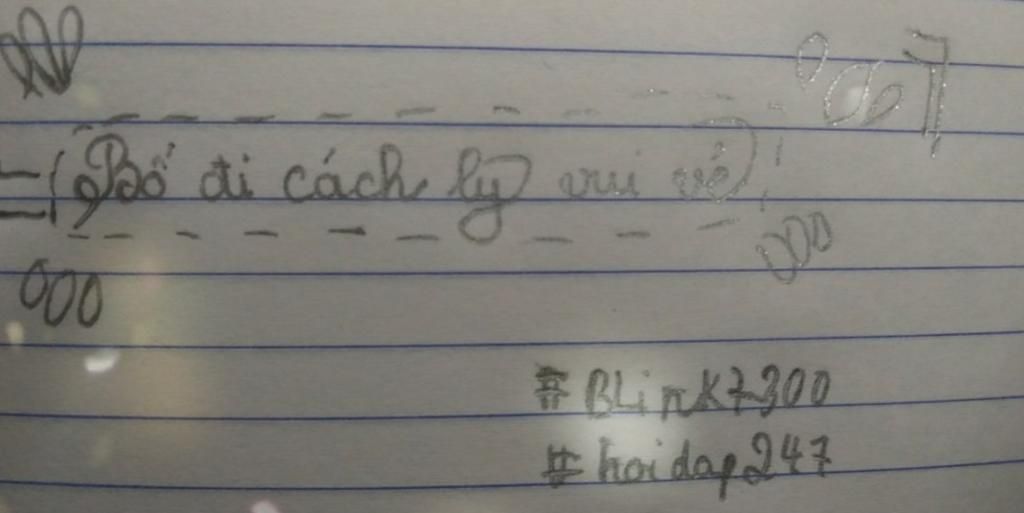 Bố đi cách ly vui vẻ
#BLinK7300
#hoidap247